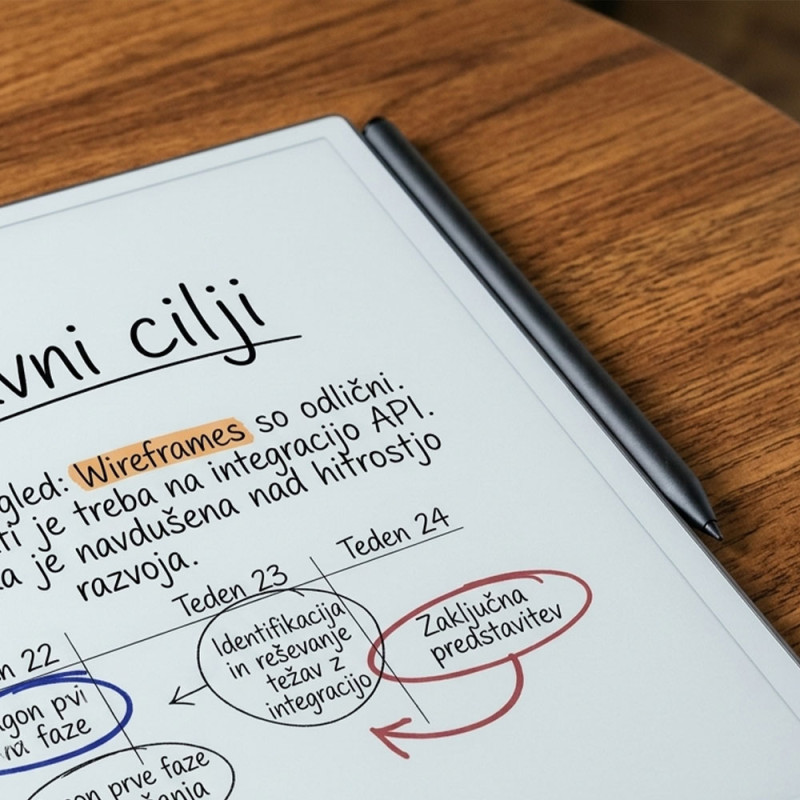 vni cilji
gled: Wireframes so odlični.
ti je treba na integracijo API.
a je navdušena nad hitrostjo
razvoja.
n 22
Teden 23
Teden 24
gon pvi
na faze
Identifikacija
in reševanje
težav z
integracijo
Zaključna
predstavitev
on prve faze
anja